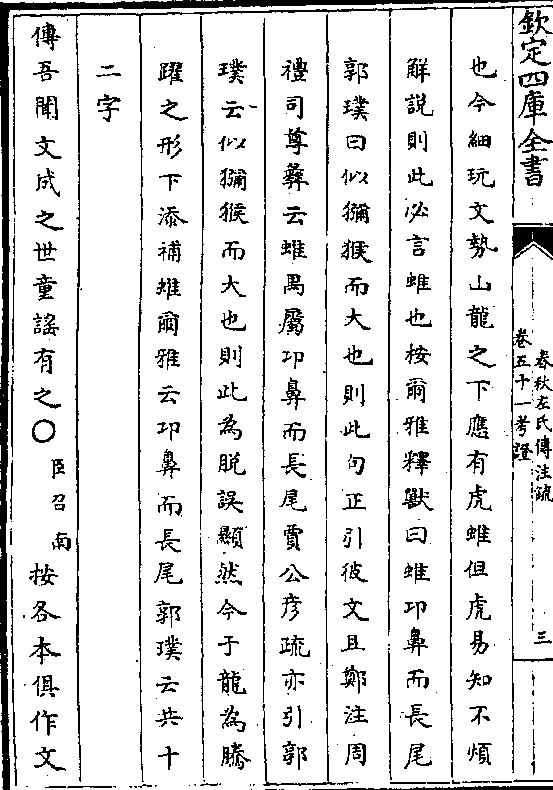 欽定四庫全書
春秋左氏傳注疏
卷五十一考證
三
也今細玩文勢山龍之下應有虎蜼但虎易知不煩
解説則此必言蜼也按爾雅釋獸曰蜼卬鼻而長尾
郭璞曰似獼猴而大也則此句正引彼文且鄭注周
禮司尊彝云蜼禺屬卬鼻而長尾賈公彦疏亦引郭
璞云似獼猴而大也則此為脱誤顯然今于龍為騰
躍之形下添補蜼爾雅云卬鼻而長尾郭璞云共十
二字
傳吾聞文成之世童謡有之〇臣召南按各本俱作文